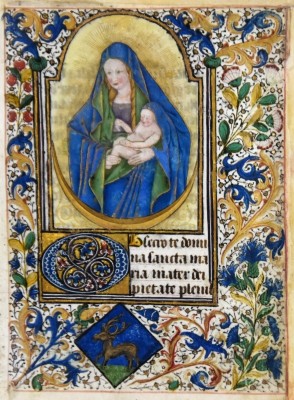 Obsecro te domi
na sancta ma
ria mater dei
pietate pleni